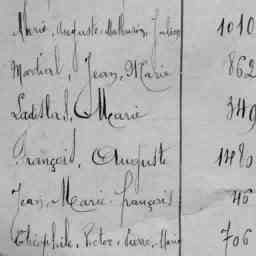 Marie, Auguste, Mathurin, Julien 1010
Martial, Jean, Marie 862
Ladislas, Marie 349
François, Auguste 1480
Jean, Marie, François 46
Théophile, Victor, Pierre, Marie 706